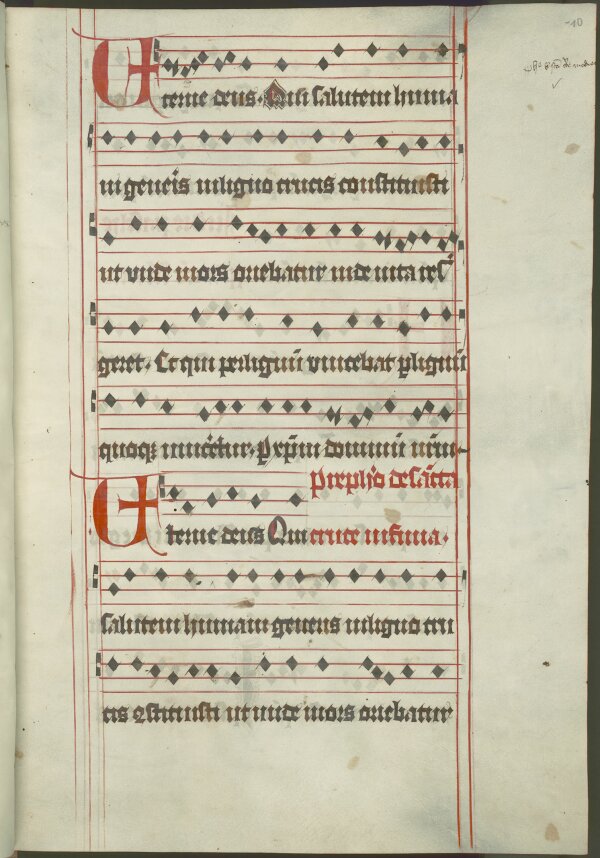 40
Eterne deus. Qui salutem huma
ni gen̄eis inligno crucis constituisti
ut vnde mors oriebatur inde uita res̄
geret. Et qui perlignū vincebat plignū
quoqꝫ uincēetur. Pxp̄m dominū nr̄m.
Prephō de sc̄ta
Eterne deus Qui cruce infirma.
salutem humani generis inligno cru
cis ꝯstituisti ut unde mors oriebatur